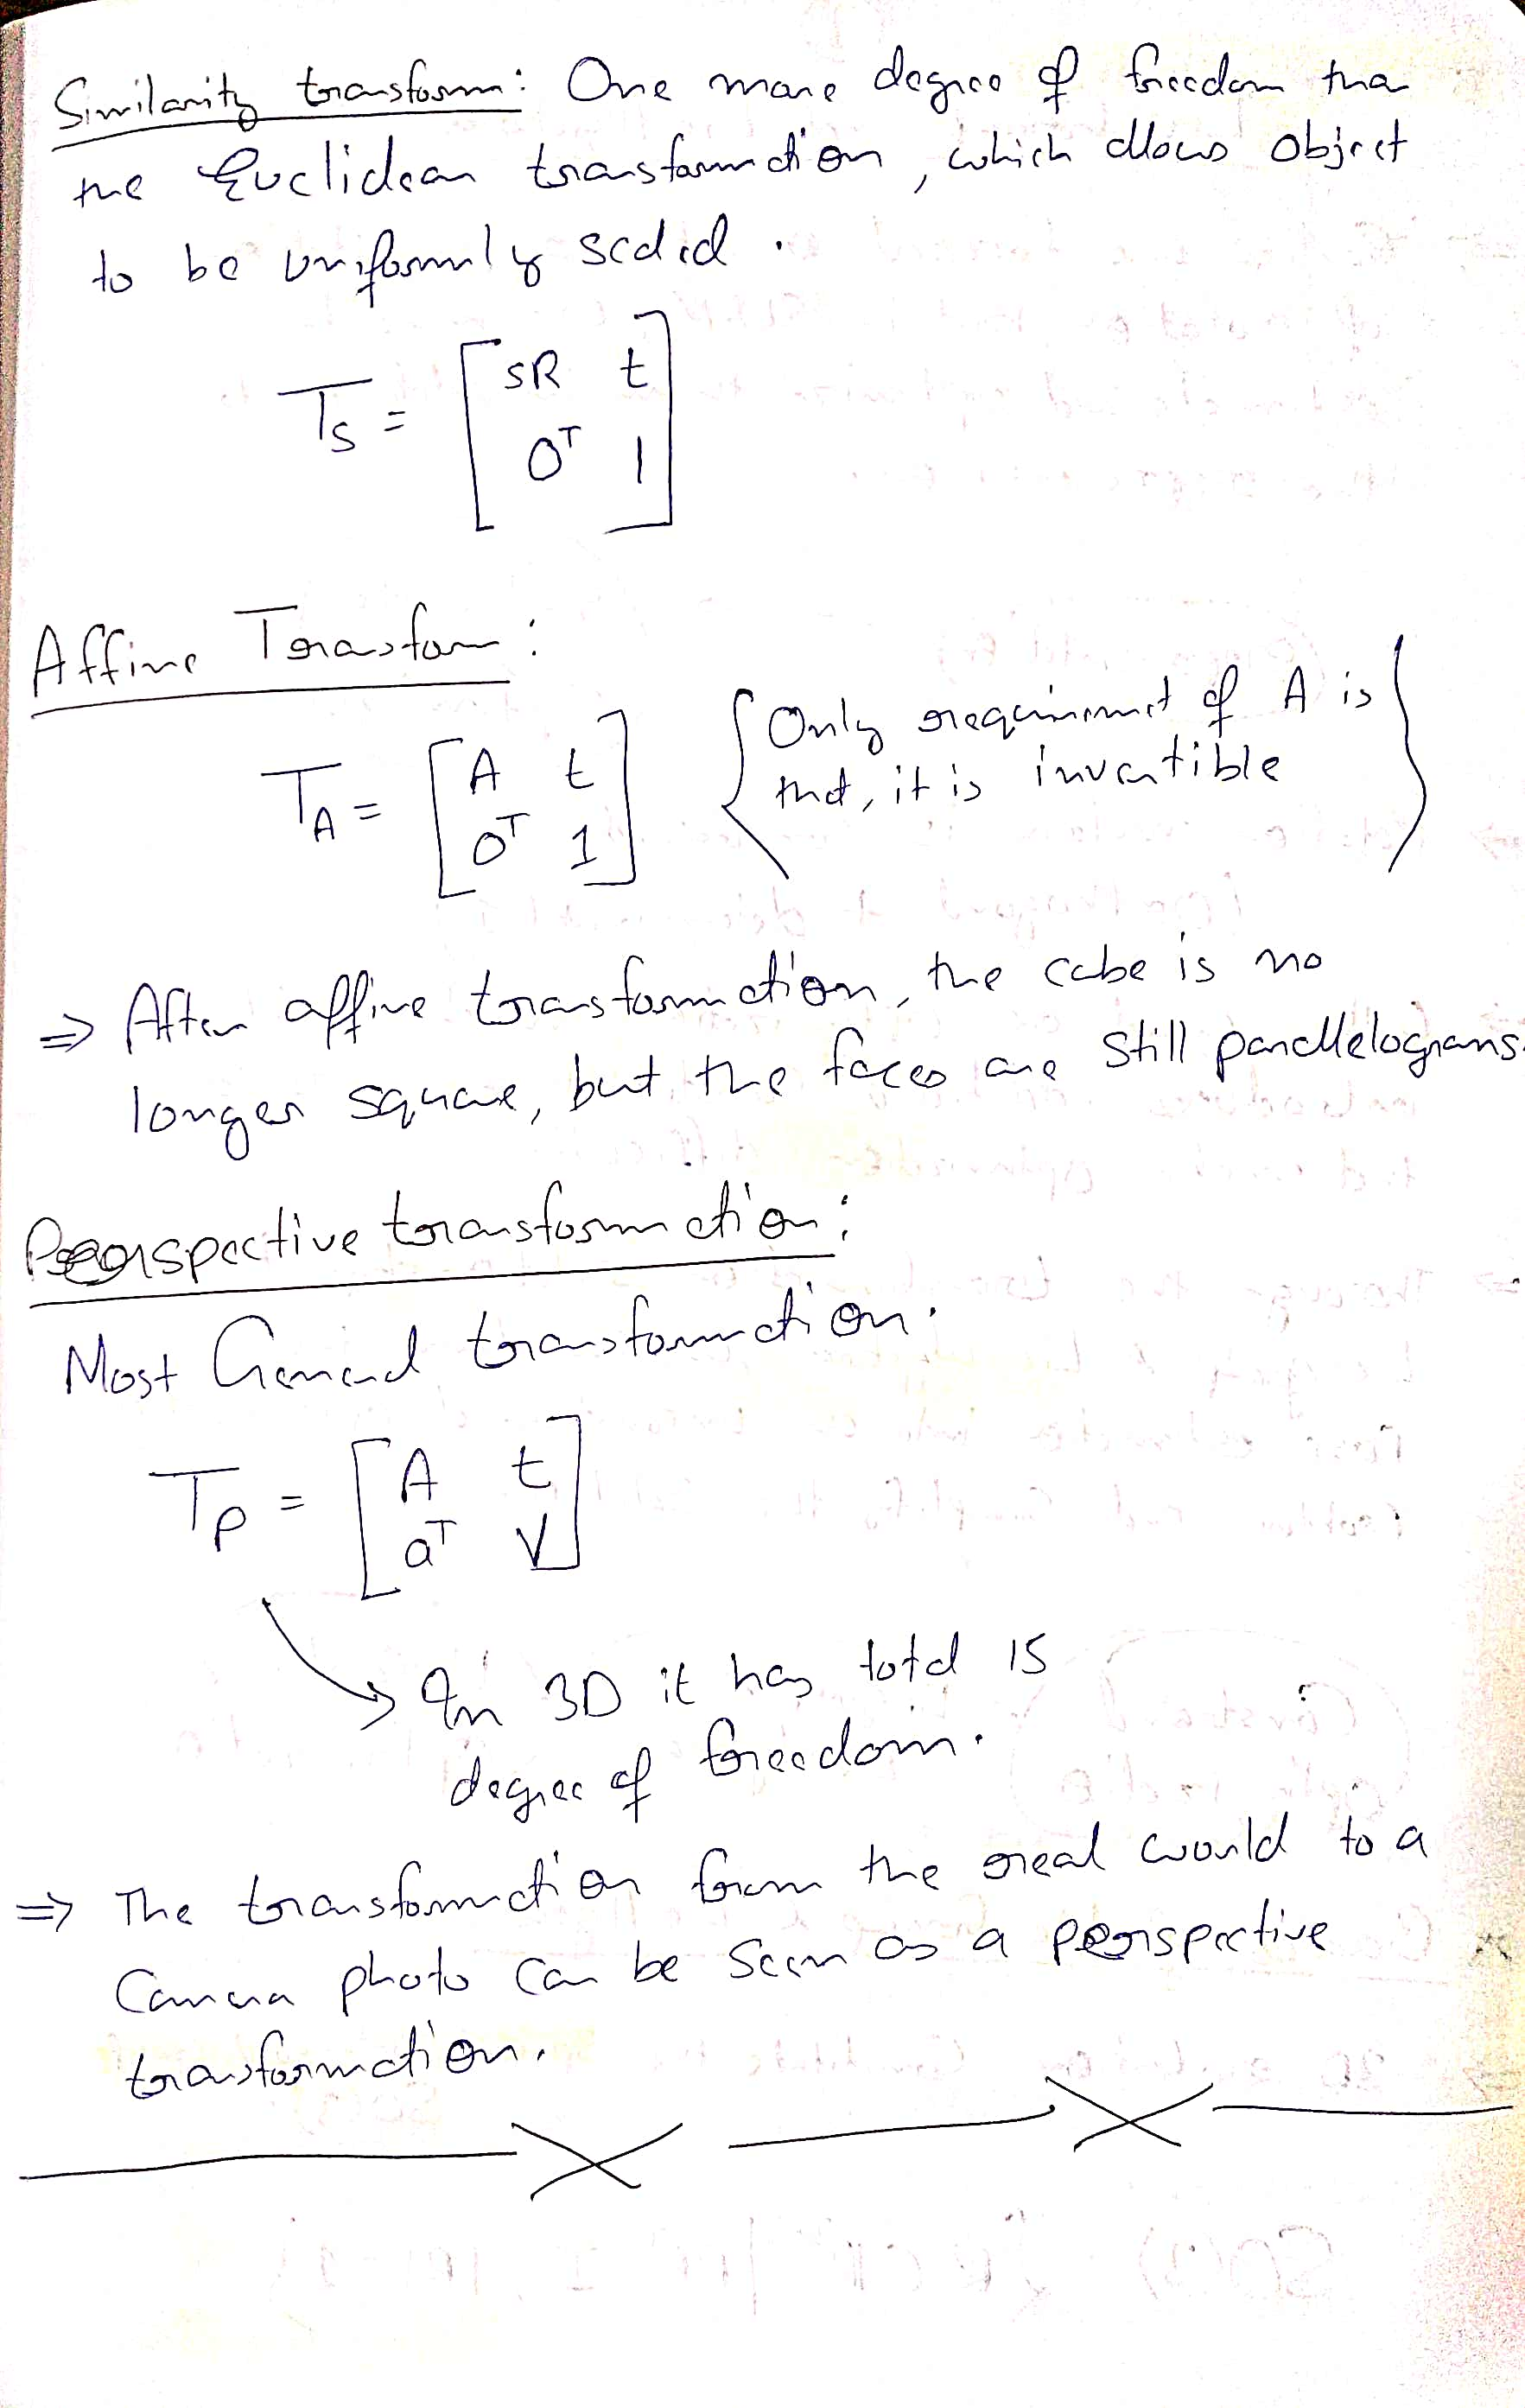 Similarity transform: One more degree of freedom tha
the Euclidean transformation, which allows object
to be uniformly scaled.
T_S = [ sR t
0^T 1 ]
Affine Transform:
T_A = [ A t
0^T 1 ]
{ Only requirement of A is
that, it is invertible }
⇒ After affine transformation, the cube is no
longer square, but the faces are still parallelograms.
Perspective transformation:
Most General transformation.
T_P = [ A t
a^T V ]
→ In 3D it has total 15
degree of freedom.
⇒ The transformation from the real world to a
Camera photo can be seen as a perspective
transformation.